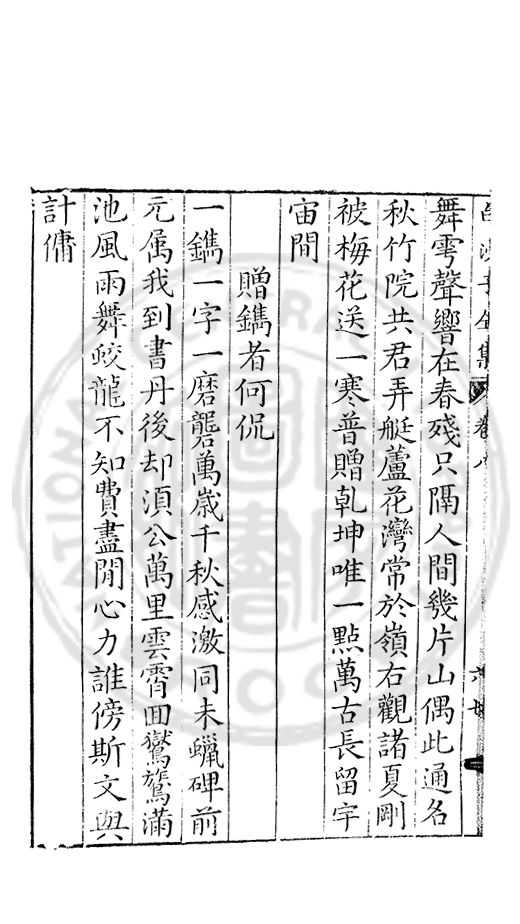 白沙子全集 卷八
舞雩聲響在春殘只隔人間幾片山偶此通名
秋竹院共君弄艇蘆花灣常於嶺右觀諸夏剛
被梅花送一寒普贈乾坤唯一點萬古長留宇
宙間
贈鐫者何侃
一鐫一字一磨礱萬歳千秋感激同未蠟碑前
元属我到書丹後却湏公萬里雲霄囬鸑鷟滿
池風雨舞蛟龍不知費盡閒心力誰傍斯文與
計傭